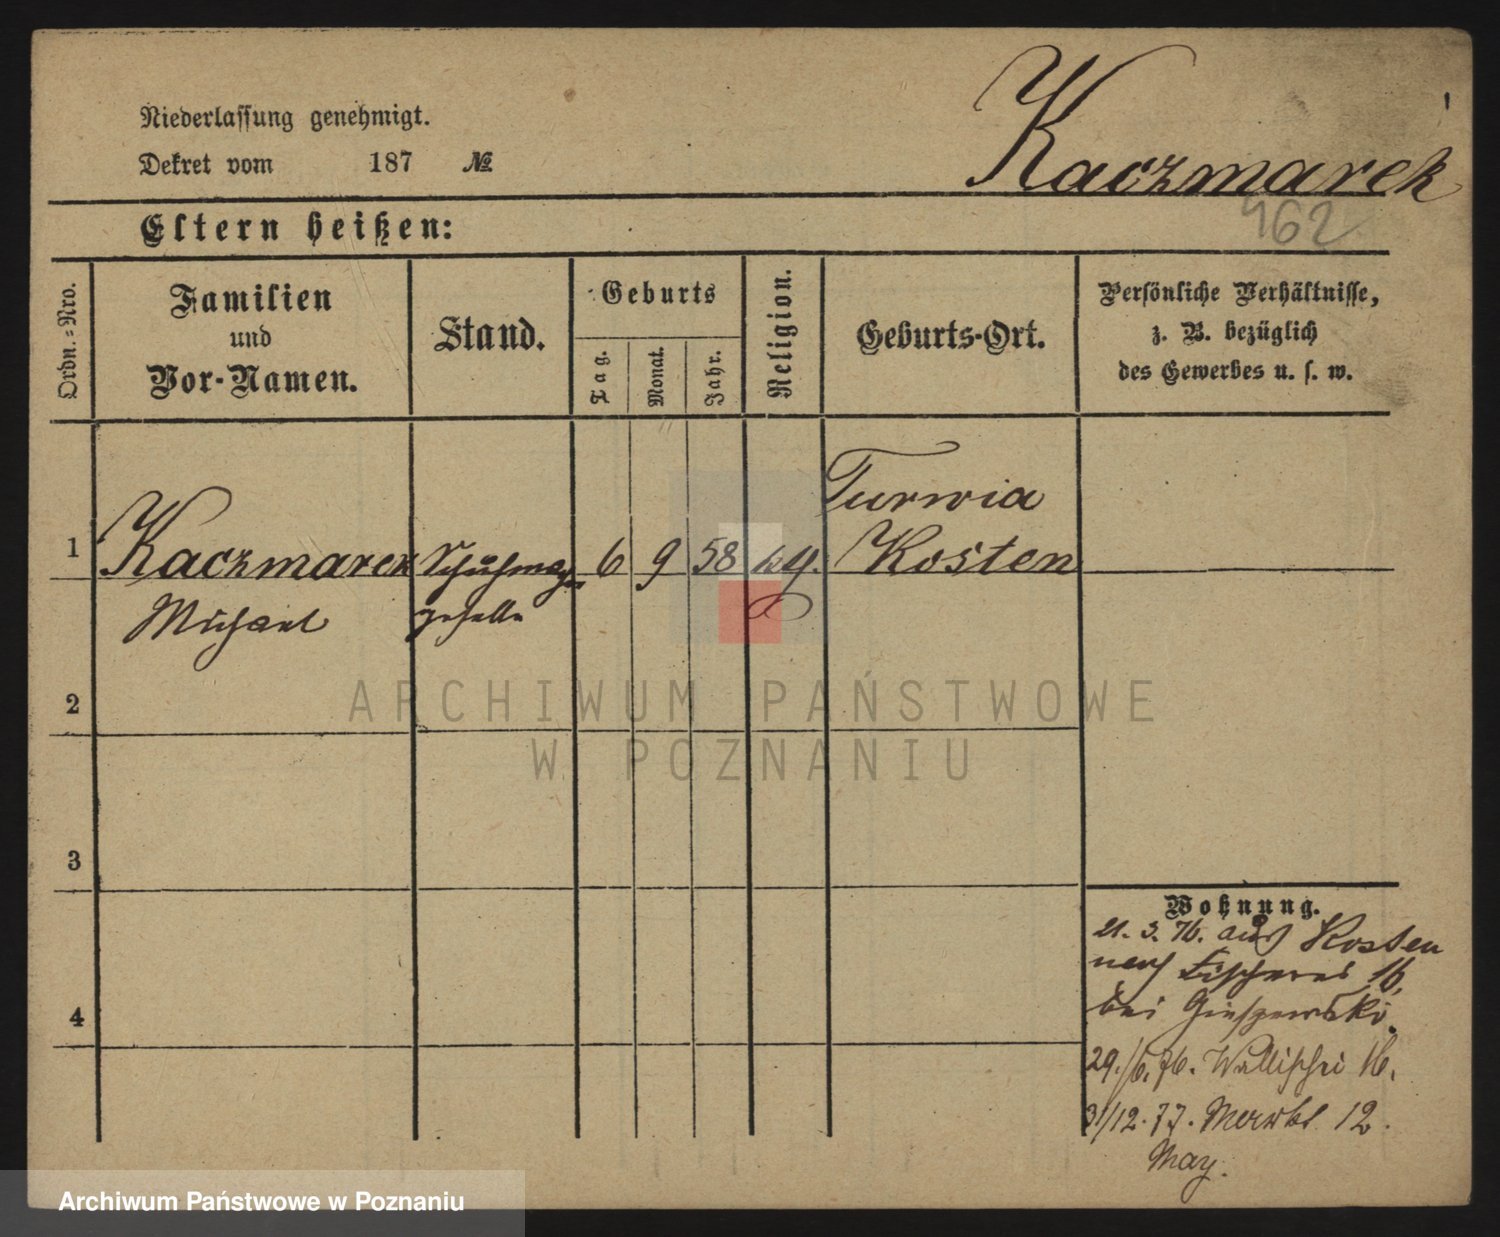 Niederlassung genehmigt.
Dekret vom 187 №
Kaczmarek
462
Eltern heißen:
Ordn.-Nro.
Familien
und
Vor-Namen.
Stand.
Geburts
Tag.
Monat.
Jahr.
Religion.
Geburts-Ort.
Persönliche Verhältnisse,
z. B. bezüglich
des Gewerbes u. s. w.
1
Kaczmarek
Michael
Schuhmacher
geselle
6 9 58
Turwia
Kosten
2
3
4
Wohnung.
21. 3. 76. aus Kosten
nach Fischerei 16,
bei
29./6.76. Wallischei 16.
31/12.77. 12.
May.
ARCHIWUM PAŃSTWOWE
W POZNANIU
Archiwum Państwowe w Poznaniu